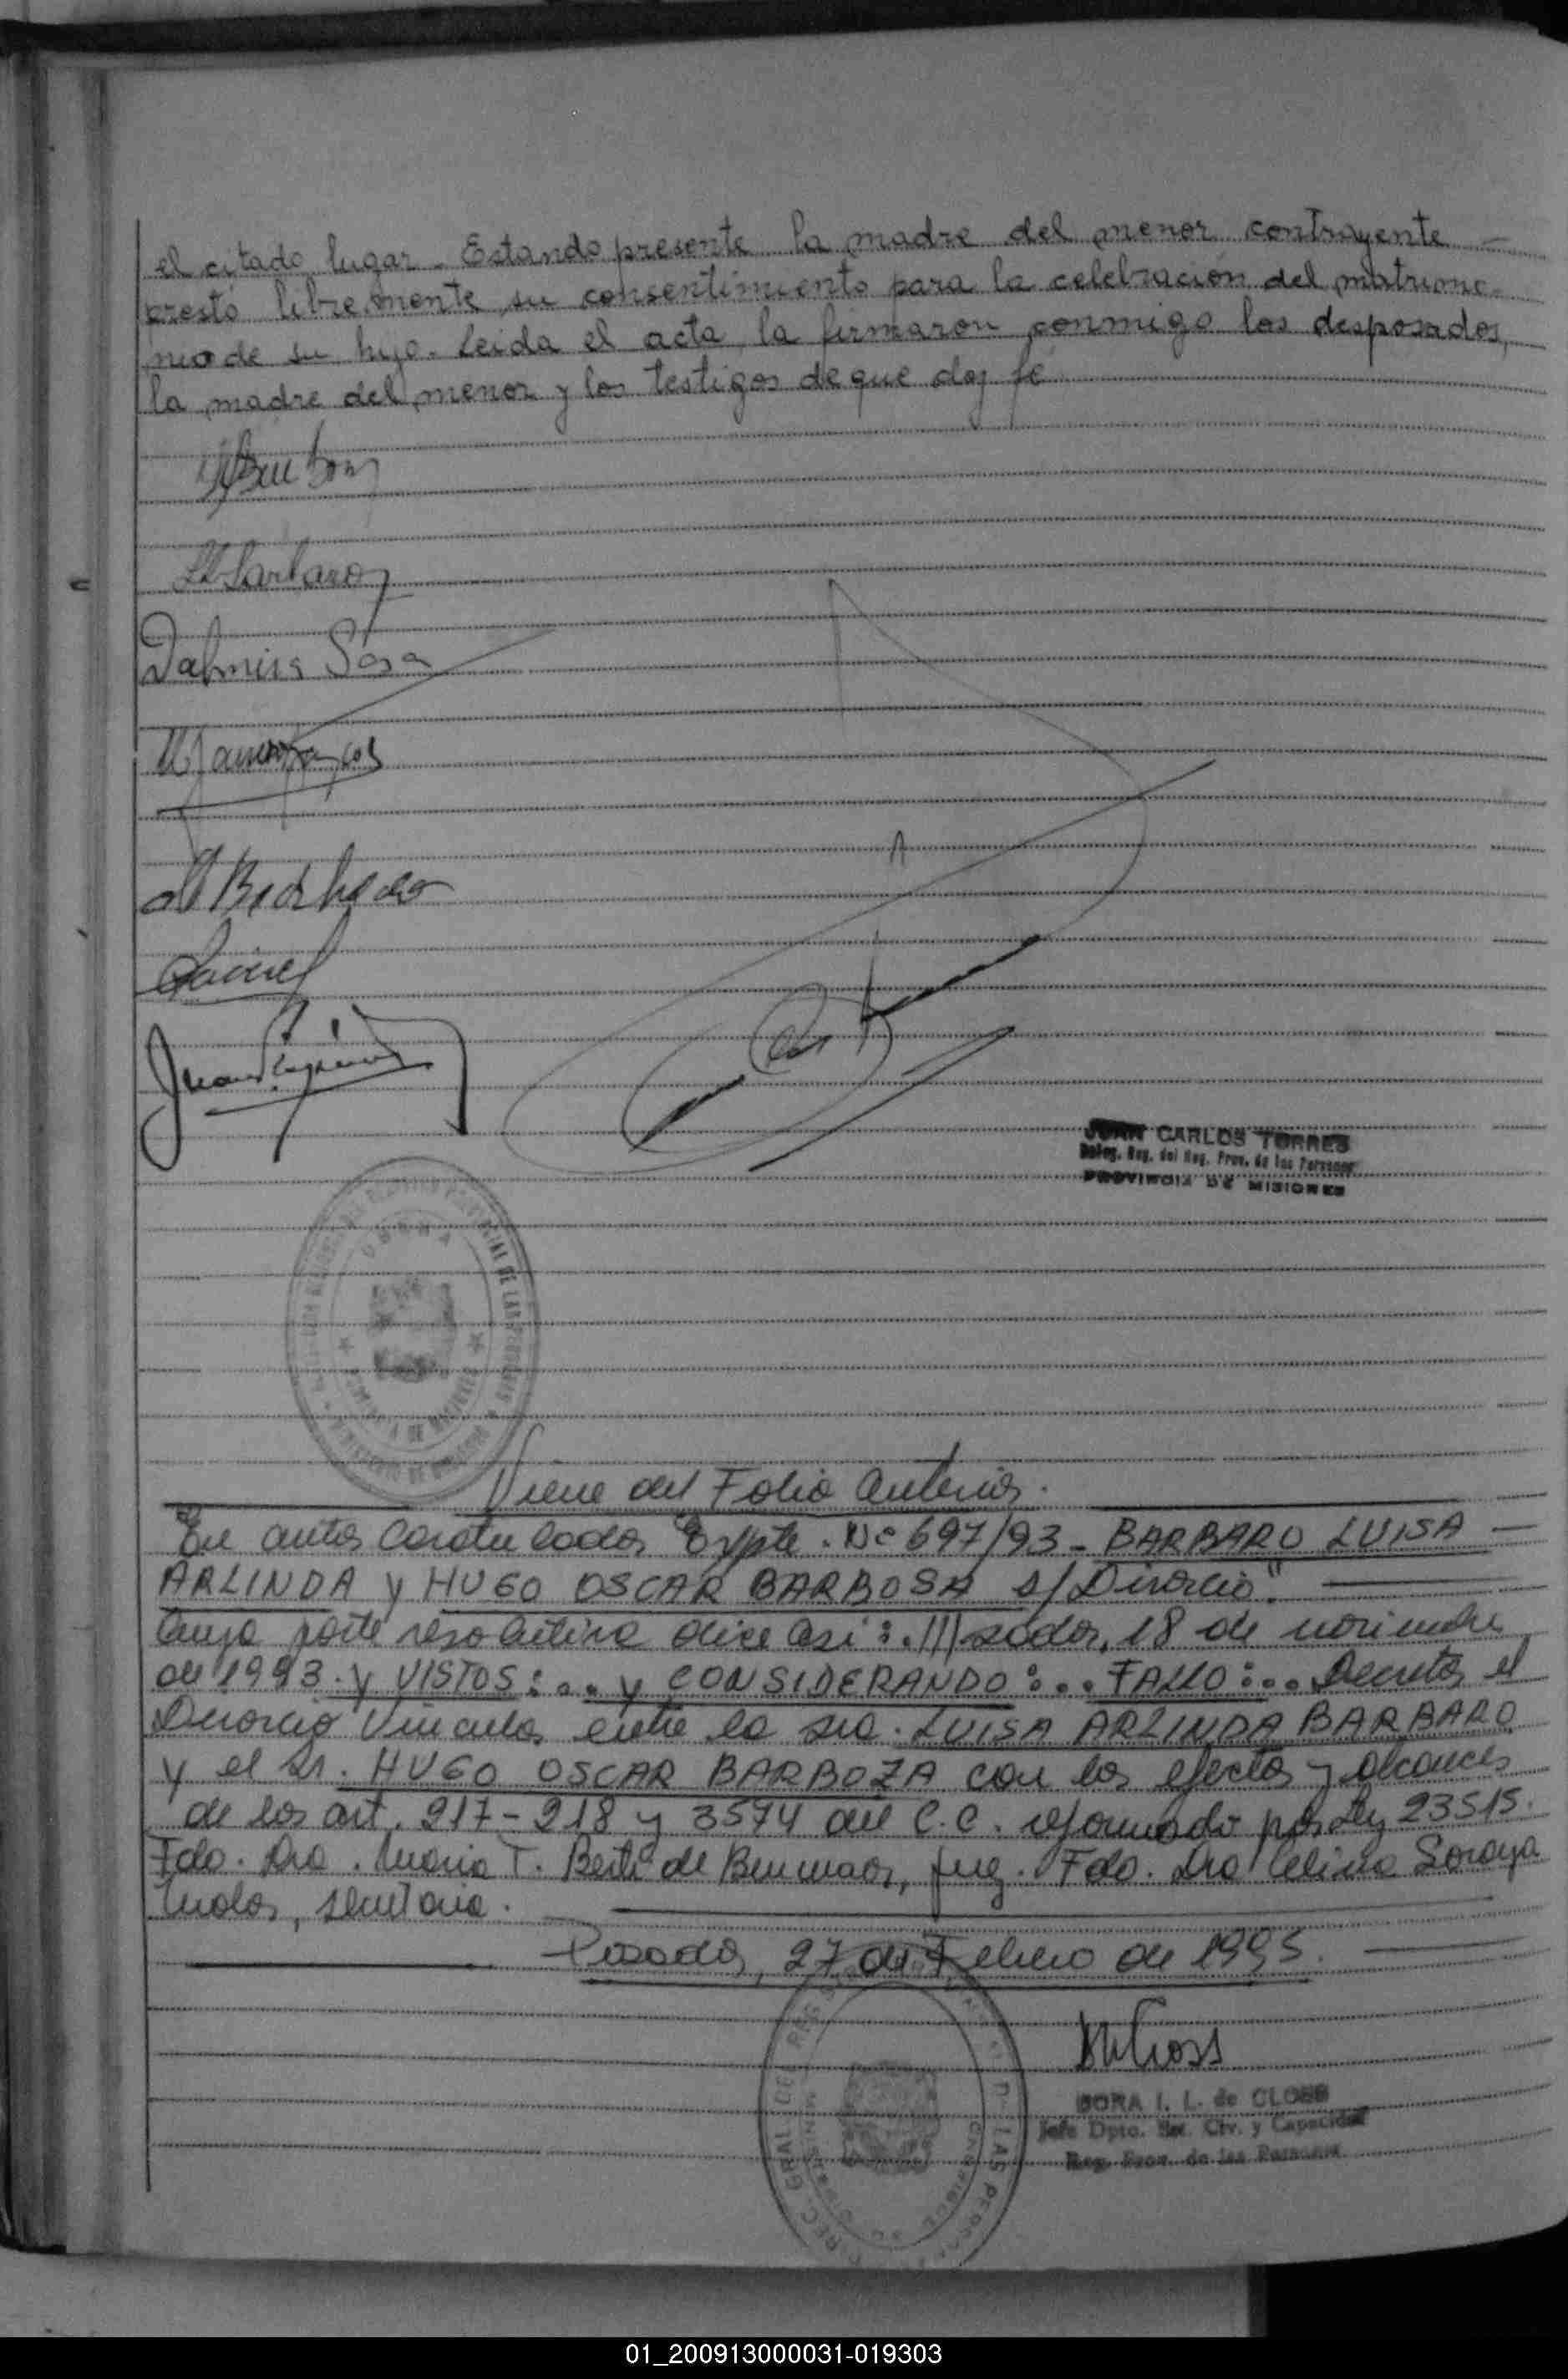 el citado lugar - Estando presente la madre del menor contrayente -
prestó libremente su consentimiento para la celebración del matrimo-
nio de su hijo. Leida el acta, la firmaron conmigo los desposados,
la madre del menor y los testigos de que doy fé
Dalmira Sosa
JUAN CARLOS TORRES
Deleg. Reg. del Reg. Prov. de las Personas
PROVINCIA DE MISIONES
Viene del Folio anterior.
En autos Caratulados "Expte. Nº 697/93 - BARBARO LUISA -
ARLINDA y HUGO OSCAR BARBOSA s/ Divorcio".
Cuya parte resolutiva dice asi: ///sadas, 18 de noviembre
de 1993. y VISTOS:... y CONSIDERANDO:... FALLO:... Decretar el
Divorcio Vincular entre la sra. LUISA ARLINDA BARBARO
y el Sr. HUGO OSCAR BARBOZA con los efectos y alcances
de los art. 217-218 y 3574 del C.C. reformado por Ley 23515.
Fdo. Dra. Maria T. de juez. Fdo. Dra Celina Soraya
secretaria.
Posadas, 27 de Febrero de 1995.
DORA I. L. de CLOSS
Jefe Dpto. Est. Civ. y Capacidad
Reg. Prov. de las Personas
01_200913000031-019303